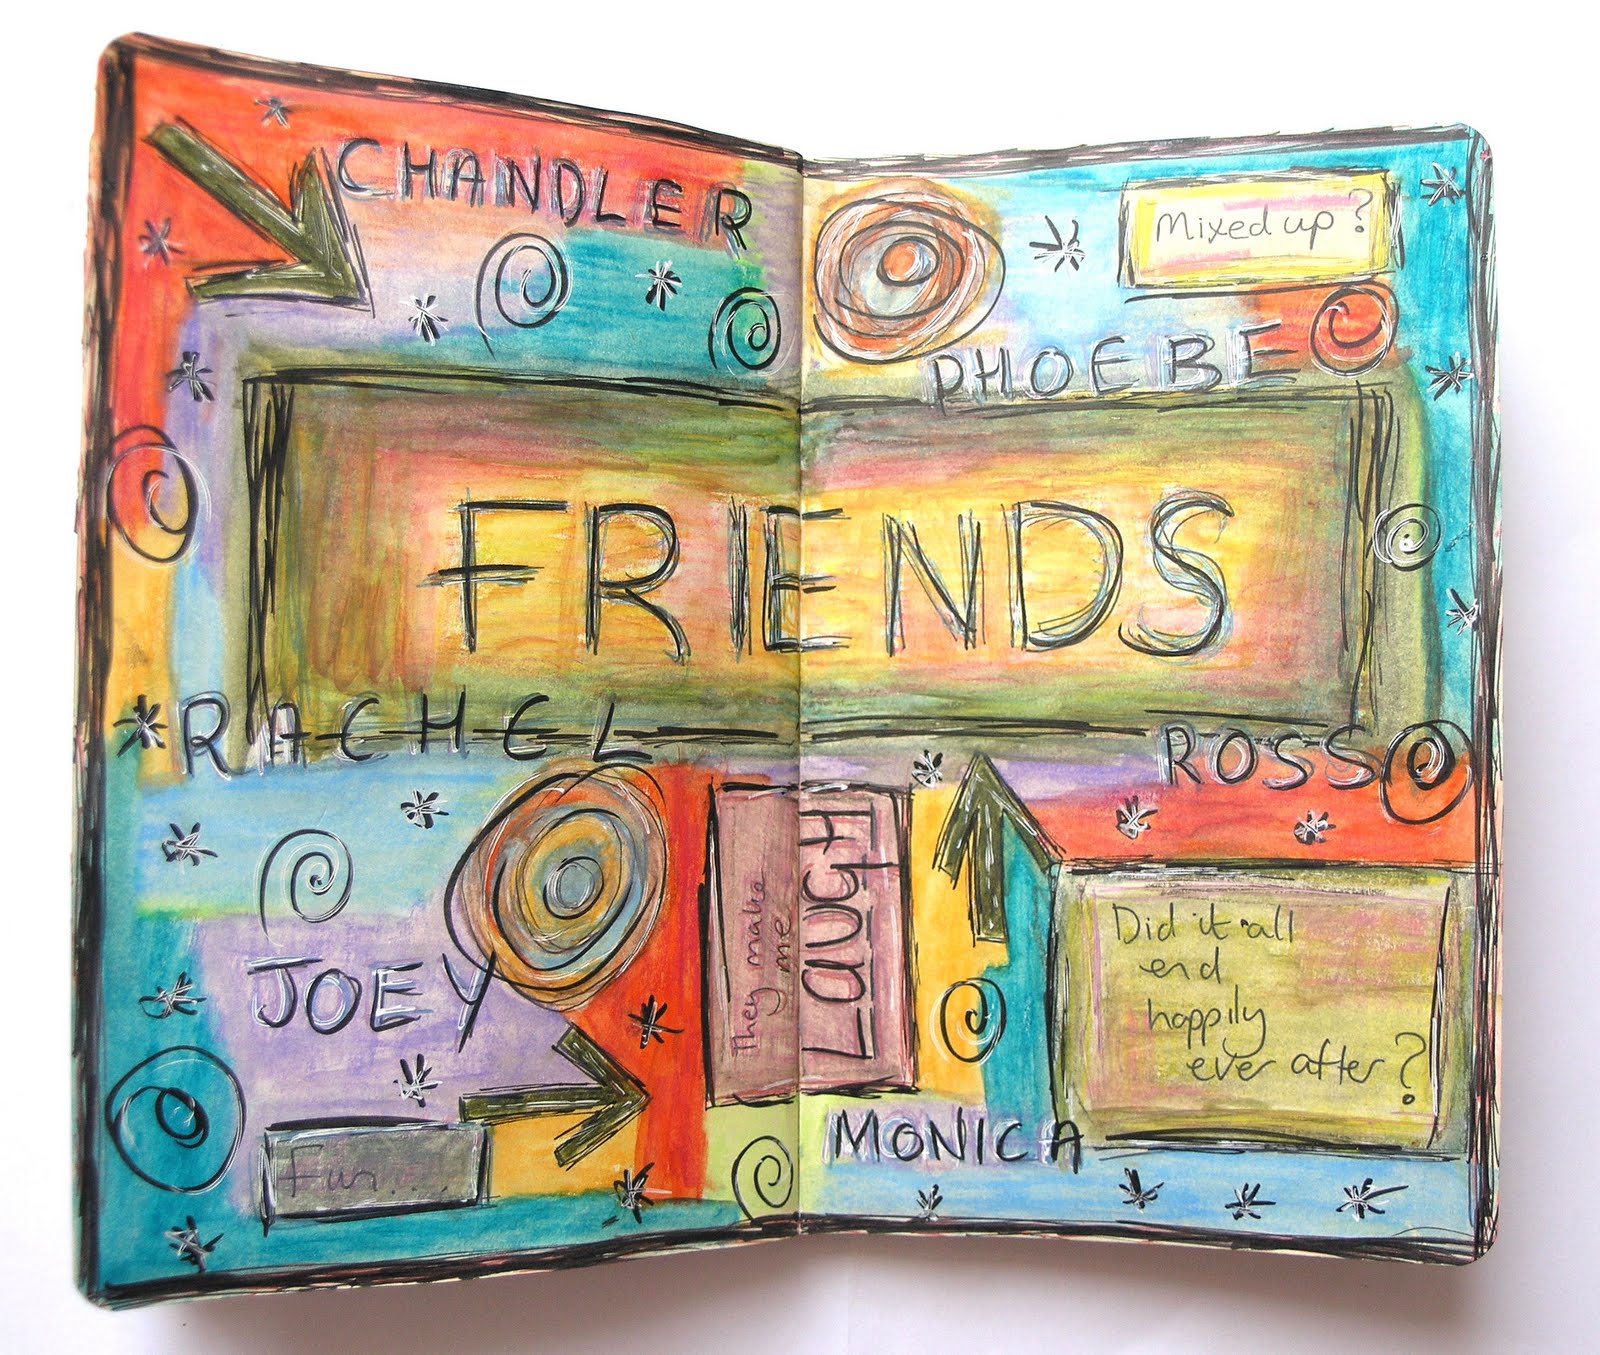 CHANDLER
Mixed up?
PHOEBE
FRIENDS
RACHEL
ROSS
They make
me
LAUGH
Did it all
end
happily
ever after?
JOEY
MONICA
Fun....